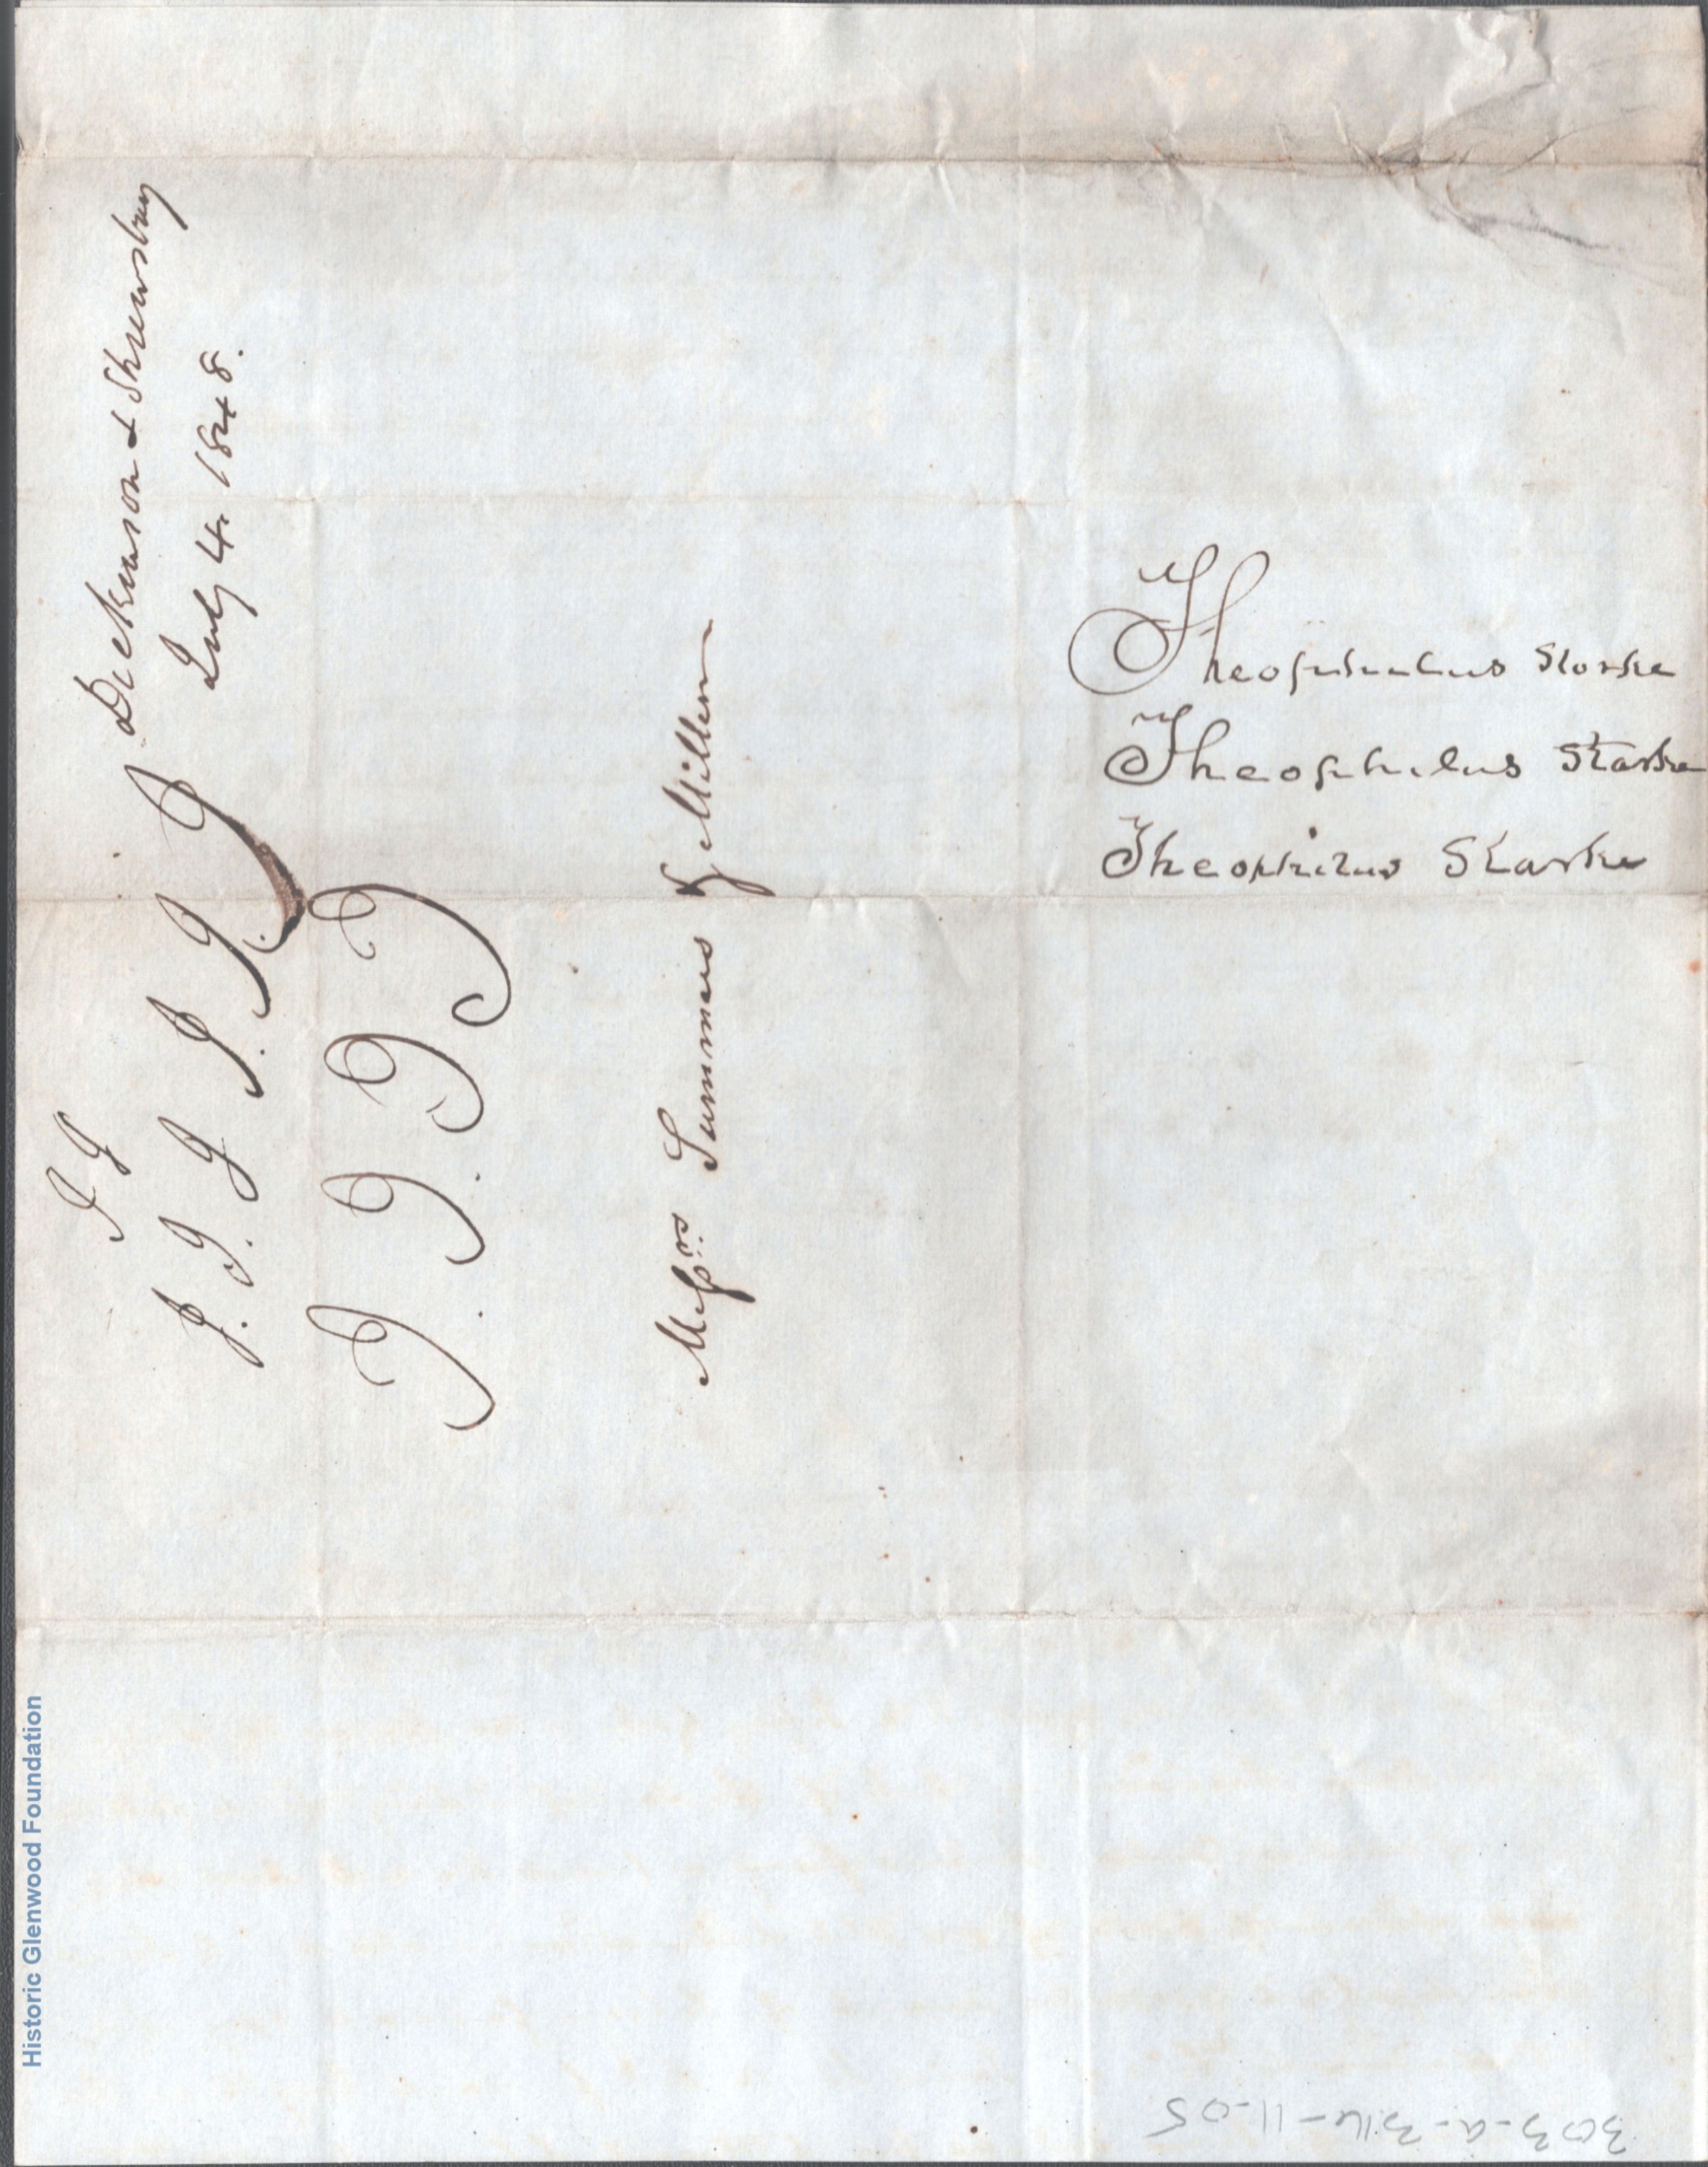 Dickinson & Shrewsbury
July 4. 1848.
J J
J. J. J J. J. J
J. J. J J
Messrs. Summers & Miller
Theophulus Storke
Theophilus Starke
Theophilus Starke
Historic Glenwood Foundation
303-a-316-11-05